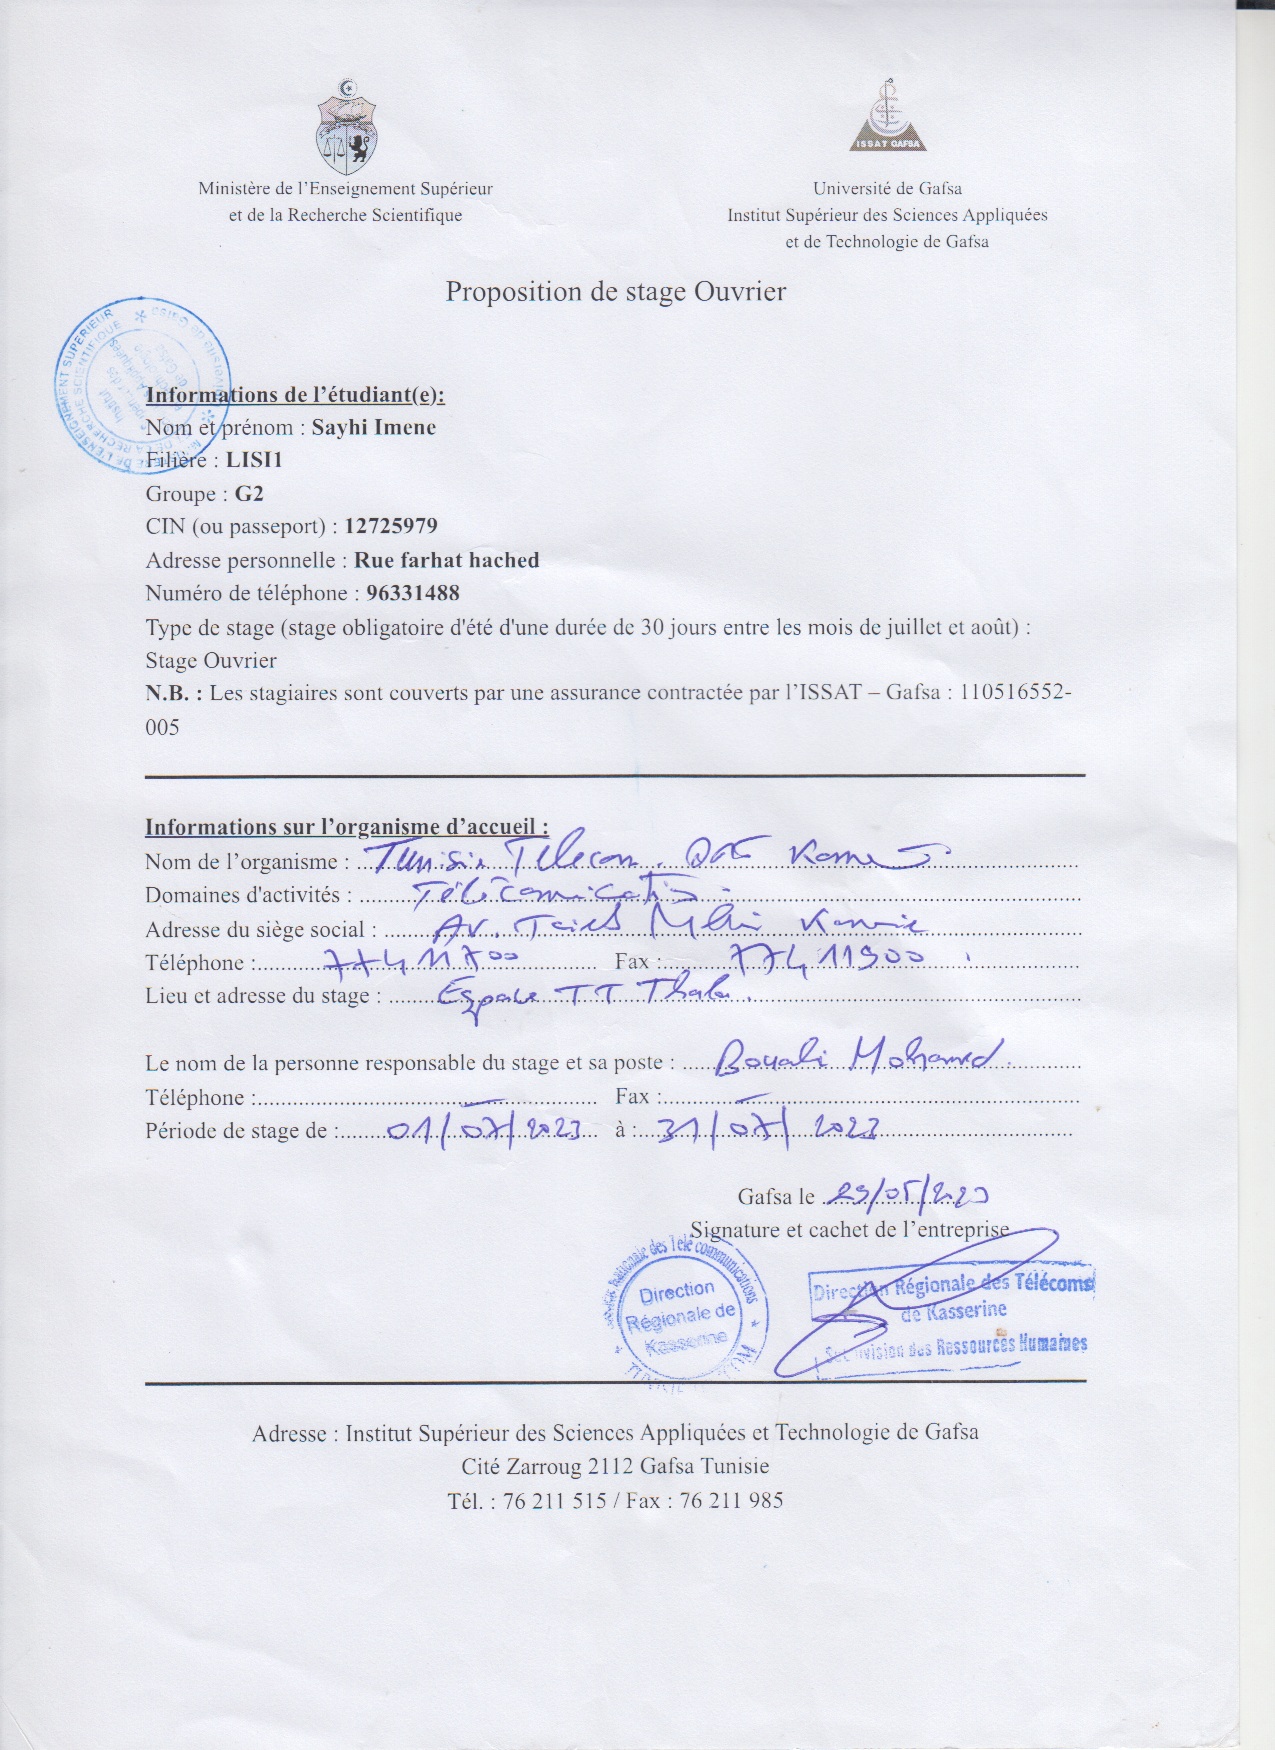 ISSAT GAFSA
Ministère de l'Enseignement Supérieur
et de la Recherche Scientifique
Université de Gafsa
Institut Supérieur des Sciences Appliquées
et de Technologie de Gafsa
Proposition de stage Ouvrier
Informations de l'étudiant(e):
Nom et prénom : Sayhi Imene
Filière : LISI1
Groupe : G2
CIN (ou passeport) : 12725979
Adresse personnelle : Rue farhat hached
Numéro de téléphone : 96331488
Type de stage (stage obligatoire d'été d'une durée de 30 jours entre les mois de juillet et août) :
Stage Ouvrier
N.B. : Les stagiaires sont couverts par une assurance contractée par l'ISSAT – Gafsa : 110516552-
005
Informations sur l'organisme d'accueil :
Nom de l'organisme : Tunisie Telecom.
Domaines d'activités : Télécomunication
Adresse du siège social : Av. Taieb Mhiri Kasserine
Téléphone : 77411700 Fax : 77411900
Lieu et adresse du stage : Espace TT Thala.
Le nom de la personne responsable du stage et sa poste : Bouali Mohamed.
Téléphone : — Fax : —
Période de stage de : 01/07/2023 à : 31/07/2023
Gafsa le 29/05/2023
Signature et cachet de l'entreprise
Direction
Régionale de
Kasserine
Direction Régionale des Télécoms
de Kasserine
Subdivision des Ressources Humaines
Adresse : Institut Supérieur des Sciences Appliquées et Technologie de Gafsa
Cité Zarroug 2112 Gafsa Tunisie
Tél. : 76 211 515 / Fax : 76 211 985